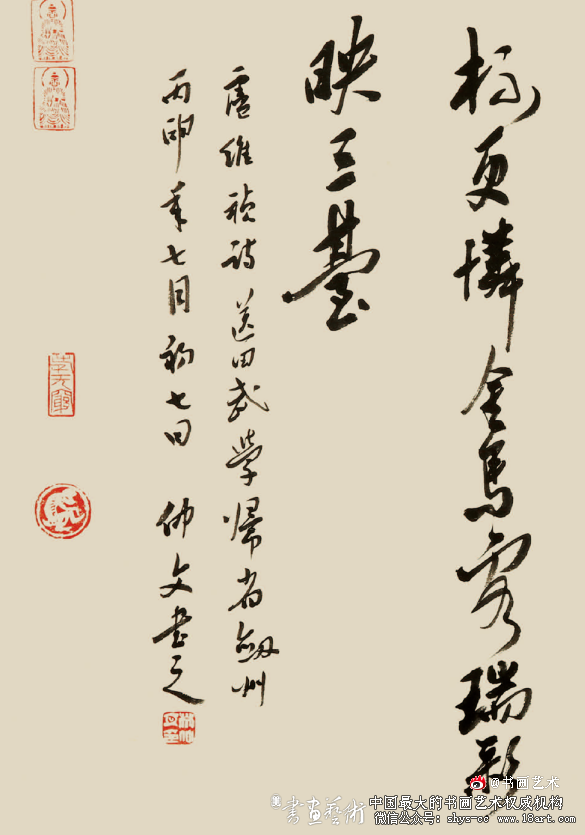 杯更憐金馬客瑞彩
映三臺
盧維禎詩送田武學歸省劔州
丙申年七月初七日 仲文書之
@书画艺术
書画藝術
中国最大的书画艺术权威机构
微信公众号：shys-cc www.18art.com